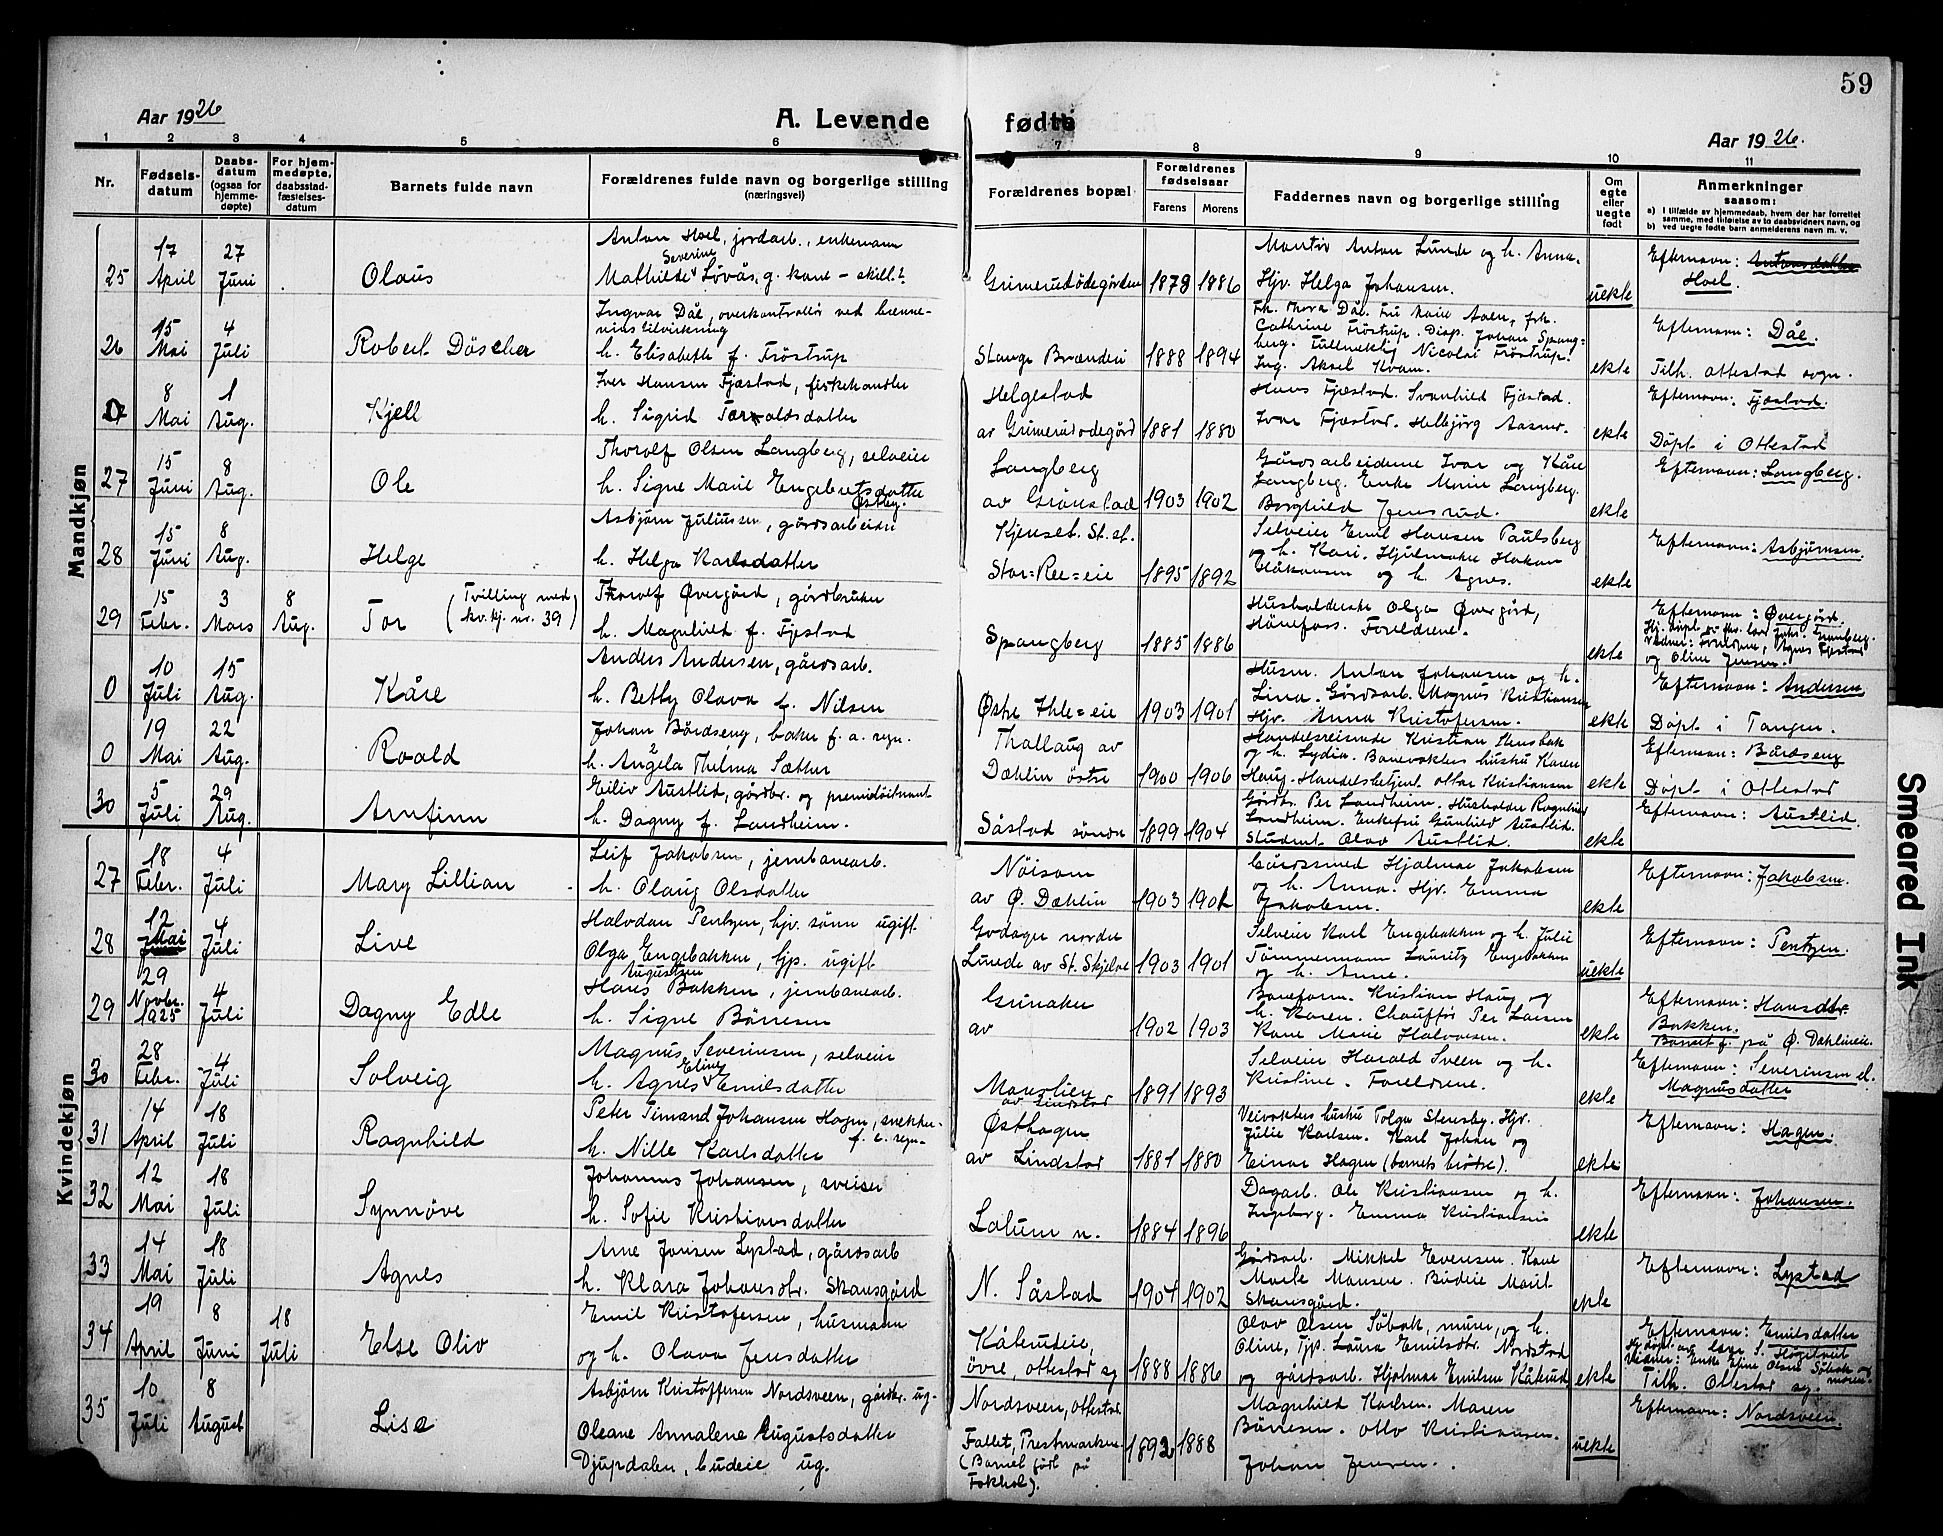 59
Aar 1926
A. Levende fødte
Aar 1926.
1 2 3 4 5 6 7 8 9 10 11
Nr.
Fødselsdatum
Daabsdatum (ogsaa for hjemmedøpte)
For hjemmedøpte, daabsstadfæstelsesdatum
Barnets fulde navn
Forældrenes fulde navn og borgerlige stilling (næringsvei)
Forældrenes bopæl
Forældrenes fødselsaar
Farens Morens
Faddernes navn og borgerlige stilling
Om egte eller uegte født
Anmerkninger saasom:
a) I tilfælde av hjemmedaab, hvem der har forrettet samme, med tilføielse av to daabsvidners navn, og
b) ved uegte fødte barn anmelderens navn m. v.
Mandkjøn
25 17 April 27 Juni Olaus
Anton Hoel, jordarb., enkemann
Mathilde Severine Løvås, g. kone - skilt
Grimerudødegården 1879 1886
Anton Lunde og h. Anna.
Hjv. Helga Johansen.
uekte
Efternavn: Antonsdatter
Hoel.
26 15 Mai 4 Juli Robert Döscher
Ingvar Dåe, overkontrollør ved brenne-
vins tilvirkning
h. Elisabeth f. Fröstrup
Stange Brænderi 1888 1894
Frk. Thora Dåe. Fru Kaie Aaen, frk.
Cathrine Fröstrup. Disp. Johan Spang-
berg. Fullmektig Nicolai Fröstrup.
Ing. Aksel Kvam.
ekte
Efternavn: Dåe.
Tilh. Ottestad sogn.
0 8 Mai 1 Aug. Kjell
Iver Hansen Fjæstad, fiskehandler
h. Sigrid Torvaldsdatter
Helgestad
av Grimerudødegård 1881 1880
Hans Fjæstad. Svanhild Fjæstad.
Ivar Fjæstad. Helbjörg Aasmr.
ekte
Efternavn: Fjæstad.
Døpt i Ottestad
27 15 Juni 8 Aug. Ole
Thorolf Olsen Langberg, selveier
h. Signe Marie Engebretsdatter
Østby.
Langberg
av Grönstad 1903 1902
Gårdsarbeiderne Ivar og Kåre
Langberg. Enke Marie Langberg.
Borghild Jensrud.
ekte
Efternavn: Langberg.
28 15 Juni 8 Aug. Helge
Asbjørn Juliussen, gårdsarbeider
h. Helga Karlsdatter
Kjenset. St. st.
Stor=Ree=eie 1895 1892
Selveier Emil Hansen Paulsberg
og h. Kari. Hjulmaker Håkon
Håkonsen og h. Agnes.
ekte
Efternavn: Asbjørnsen.
29 15 Febr. 3 Mars 8 Aug. Tor (Tvilling med kv.kj. nr. 39)
Thorolf Øvergård, gårdbruker
h. Magnhild f. Fjæstad
Spangberg 1885 1886
Husholderske Olga Øvergård,
Hönefoss. Foreldrene.
ekte
Efternavn: Øvergård.
og Oline Jensen.
0 10 Juli 15 Aug. Kåre
Anders Andersen, gårdsarb.
h. Betty Olava f. Nilsen
Østre Ihle=eie 1903 1901
Husm. Anton Johansen og h.
Lina. Gårdsarb. Magnus Kristiansen
Hjv. Anna Kristofersen.
ekte
Efternavn: Andersen
Døpt i Tangen.
0 19 Mai 22 Aug. Roald
Johan Bårdseng, baker f. a. sogn.
h. Angela Thelma Sætter
Thallaug av
Dæhlin østre 1900 1906
Handelsreisende Kristian Stensbak
og h. Lydia. Banevokters hustru Karen
Haug. Handelsbetjent Ottar Kristiansen
ekte
Efternavn: Bårdseng
Døpt i Ottestad
30 5 Juli 29 Aug. Arnfinn
Eiliv Austlid, gårdbr. og premiðløitnant
h. Dagny f. Landheim.
Såstad söndre 1899 1904
Gårdbr. Per Landheim. Husholder Ragnhild
Landheim. Enkefru Gunhild Austlid.
Student Olav Austlid.
ekte
Efternavn: Austlid.
Kvindekjøn
27 18 Febr. 4 Juli Mary Lillian
Leif Jakobsen, jernbanearb.
h. Olaug Olsdatter
Nöisom
av Ø. Dæhlin 1903 1901
Gårdssmed Hjalmar Jakobsen
og h. Anna. Hjv. Emma
Jakobsen.
ekte
Efternavn: Jakobsen.
28 12 Mai 4 Juli Live
Halvdan Pentzen, hjv. sönn ugift.
Olga Engebakken, hjp. ugift
Godager nordre
Lunde av St. Skjelve 1903 1901
Selveier Karl Engebakken og h. Julie
Tömmermann Lauritz Engebakken
og h. Anne.
uekte
Efternavn: Pentzen.
29 29 Novbr. 1925 4 Juli Dagny Edle
Hans Augustsen Bakken, jernbanearb.
h. Signe Börresen
Grinaker
av 1902 1903
Baneform. Kristian Haug og
h. Karen. Chauffør Per Larsen
Kone Marie Halvorsen.
ekte
Efternavn: Hansdtr.
Bakken.
Barnet f. på Ø. Dæhlineie.
30 28 Febr. 4 Juli Solveig
Magnus Severinsen, selveier
h. Agnes Eline Emilsdatter
Mourlien
av Lindstad 1891 1893
Selveier Harald Sveen og h.
Kristine. Foreldrene.
ekte
Efternavn: Severinsen el.
Magnusdatter
31 14 April 18 Juli Ragnhild
Peter Timand Johansen Hagen, snekker
f. e. regn.
h. Nille Karlsdatter
Østhagen
av Lindstad 1881 1880
Veivokters hustru Tolga Stensby. Hjv.
Julie Karlsen. Karl Johan og
Einar Hagen (barnets brödre).
ekte
Efternavn: Hagen.
32 12 Mai 18 Juli Synnöve
Johannes Johansen, sveiser
h. Sofie Kristiansdatter
Lalum n. 1884 1896
Dagarb. Ole Kristiansen og h.
Ingeborg. Emma Kristiansen
ekte
Efternavn: Johansen.
33 14 Mai 18 Juli Agnes
Arne Jonsen Lystad, gårdsarb
h. Klara Johansdtr. Skansgård
N. Såstad 1904 1902
Gårdsarb. Mikkel Evensen. Kone
Marte Mansen. Budeie Marit
Skansgård.
ekte
Efternavn: Lystad
34 19 April 8 Juni 18 Juli Else Oliv
Emil Kristofersen, husmann
og h. Olava Jensdatter
Kåterudeie,
övre, Ottestad sg 1888 1886
Olav Olsen Söbak, murer, og h.
Oline, Tjp. Laura Emilsdtr. Nordstad
og gårdsarb. Hjalmar Emilsen Kåterud.
ekte
Efternavn: Emilsdatter
Hj. döpt av lærer S. Høgetveit
Vidner: Enke Eline Olsen Söbak og moren.
Tilh. Ottestad sg.
35 10 Juli 8 August Lise
Asbjørn Kristoffersen Nordsveen, gårdbr. ug.
Oleane Annalene Augustsdatter
Djupdalen, budeie ug.
Nordsveen, Ottestad
Fallet, Prestmarken
(Barnet født på
Fokhol). 1892 1888
Magnhild Karlsen. Maren
Börresen. Otto Kristiansen.
Johan Jensen.
uekte
Efternavn: Nordsveen.
Smeared Ink